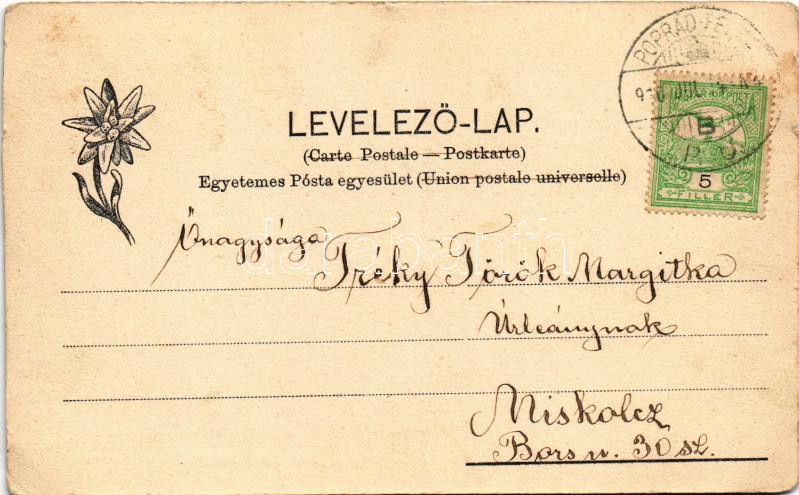 LEVELEZŐ-LAP.
(Carte Postale — Postkarte)
Egyetemes Pósta egyesület (Union postale universelle)
POPRÁD-FE
MAGYAR KIR. POSTA
5
FILLÉR
Őnagysága
Tréky Török Margitka
Úrleánynak
Miskolcz
Bors u. 30 sz.